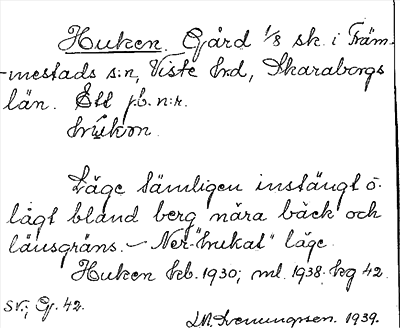 Huken. Gård 1/8 sk. i Främ-
-mestads s:n, Viste hrd, Skaraborgs
län. Ett j.b. n:r.
húkon.
Läge tämligen instängt o.
lågt bland berg nära bäck och
länsgräns. - Ner-"hukat" läge.
Huken kb. 1930; ml. 1938. kg 42.
Sv.; Gj. 42.
Ivenungsen. 1939.